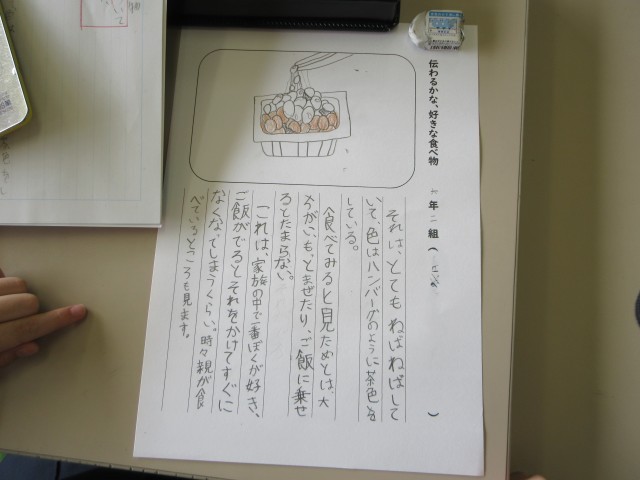 伝わるかな、好きな食べ物 年 二 組 ( )
それは、とてもねばねばして
いて、色はハンバーグのように茶色を
している。
食べてみると見ためとは大
ちがい、もっとまぜたり、ご飯に乗せ
るとたまらない。
これは、家族の中で一番ぼくが好き、
ご飯がでるとそれをかけてすぐに
なくなってしまうくらい。時々親が食
べているところも見ます。